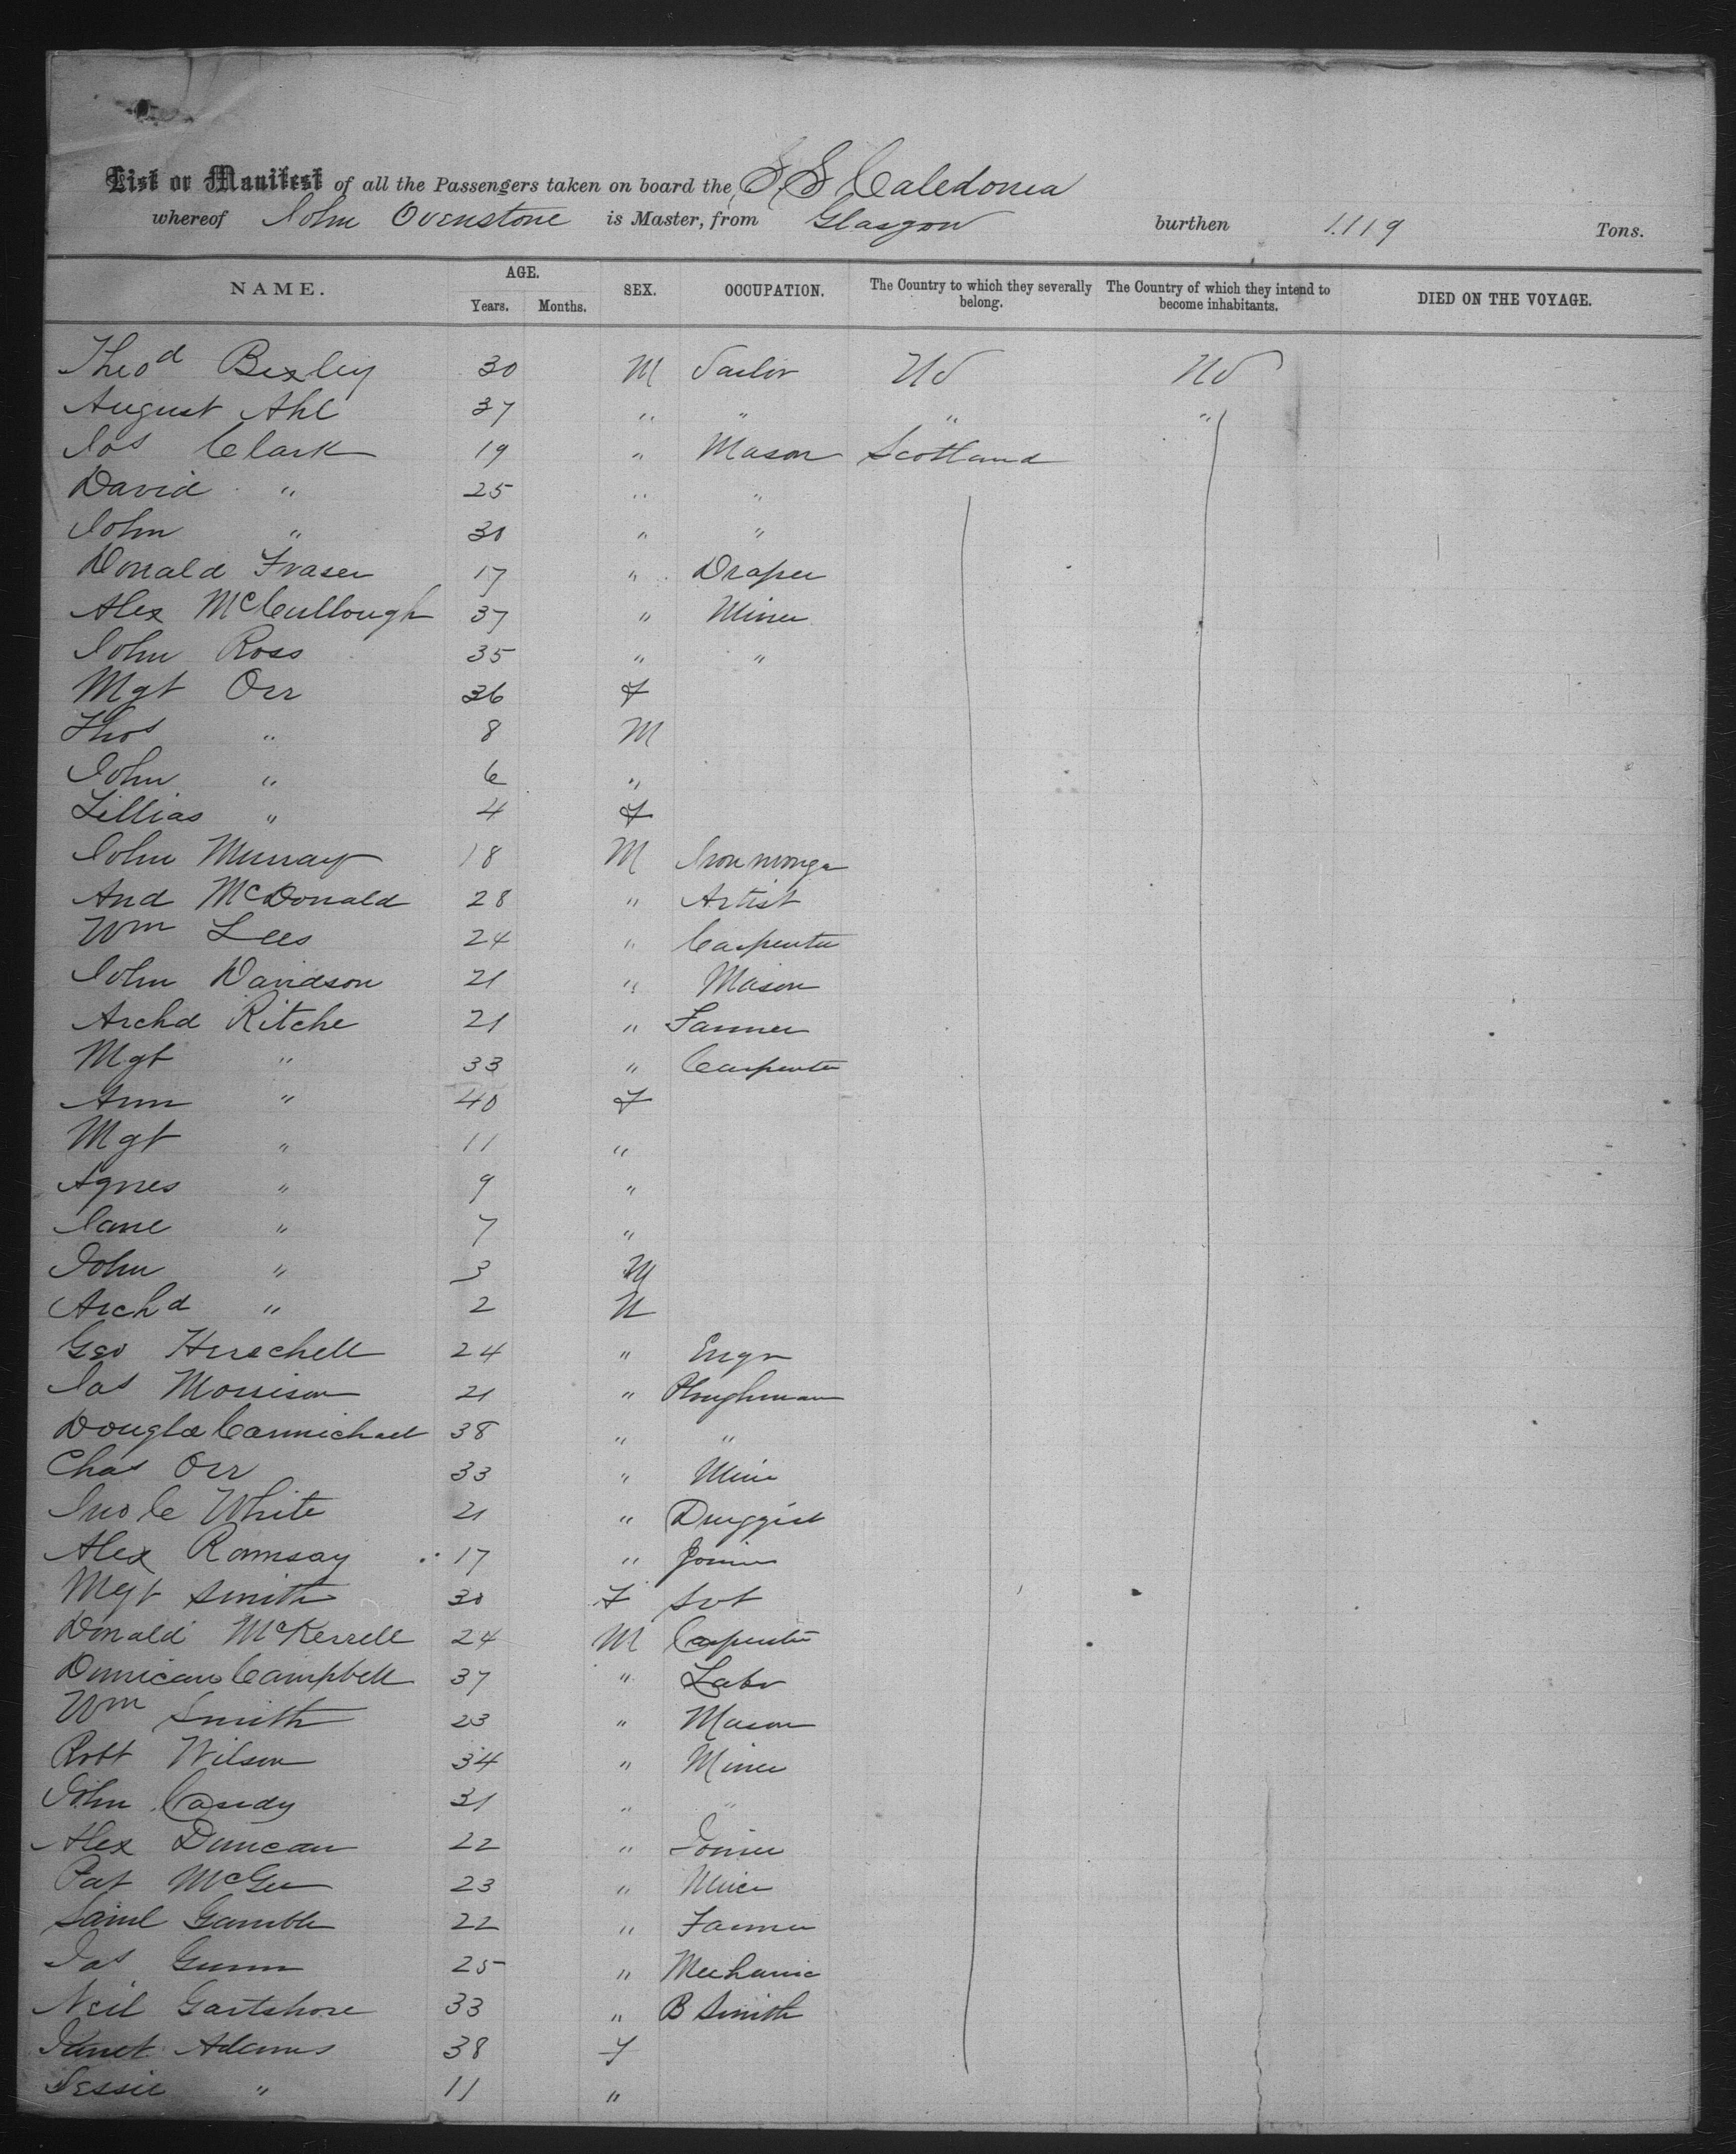 List or Manifest of all the Passengers taken on board the S.S Caledonia
whereof John Ovenstone is Master, from Glasgow burthen 1.119 Tons.
NAME. AGE. SEX. OCCUPATION. The Country to which they severally belong. The Country of which they intend to become inhabitants. DIED ON THE VOYAGE.
Years. Months.
Theod Bexley 30 M Sailor US US
August Ahl 37 " " " "
Jas Clark 19 " Mason Scotland
David " 25 " "
John " 30 " "
Donald Fraser 17 " Draper
Alex McCullough 37 " Miner
John Ross 35 " "
Mgt Orr 36 F
Thos " 8 M
John " 6 "
Lillias " 4 F
John Murray 18 M Iron monger
And McDonald 28 " Artist
Wm Lees 24 " Carpenter
John Davidson 21 " Mason
Archd Ritche 21 " Farmer
Mgt " 33 " Carpenter
Ann " 40 F
Mgt " 11 "
Agnes " 9 "
Jane " 7 "
John " 3 M
Archd " 2 M
Geo Herschell 24 " Engr
Jas Morrison 21 " Ploughman
Douglas Carmichael 38 " "
Chas Orr 33 " Miner
Jno C White 21 " Druggist
Alex Ramsay 17 " Joiner
Mgt Smith 30 F Svt
Donald McKerrell 24 M Carpenter
Dunican Campbell 37 " Labr
Wm Smith 23 " Mason
Robt Wilson 34 " Miner
John 31 " "
Alex Duncan 22 " Joiner
Pat McGee 23 " Miner
Saml Gamble 22 " Farmer
Jas Gunn 25 " Mechanic
Neil Gartshore 33 " B Smith
Janet Adams 38 F
Jessie " 11 "